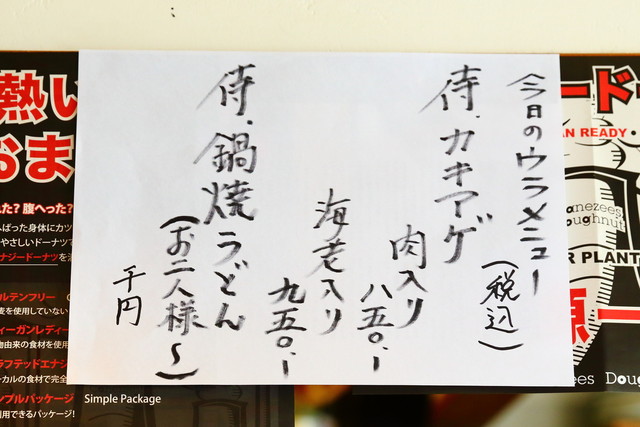 今日のウラメニュー
(税込)
侍.カキアゲ
肉入り
八五〇.-
海老入り
九五〇.-
侍.鍋焼うどん
(お二人様〜)
千円
熱い
おま
れた? 腹へった?
へばった身体にカツ
やさしいドーナツ
ナジードーナツを
ルテンフリー
麦を使用していない
ィーガンレディー
物由来の食材を使用
ラフテッドエナジ
ーカルの食材で完全
ンプルパッケージ
利用できるパッケージ!
Simple Package
ード
AN READY
anezees
Doughnut
R PLANT
源
ezees Dou